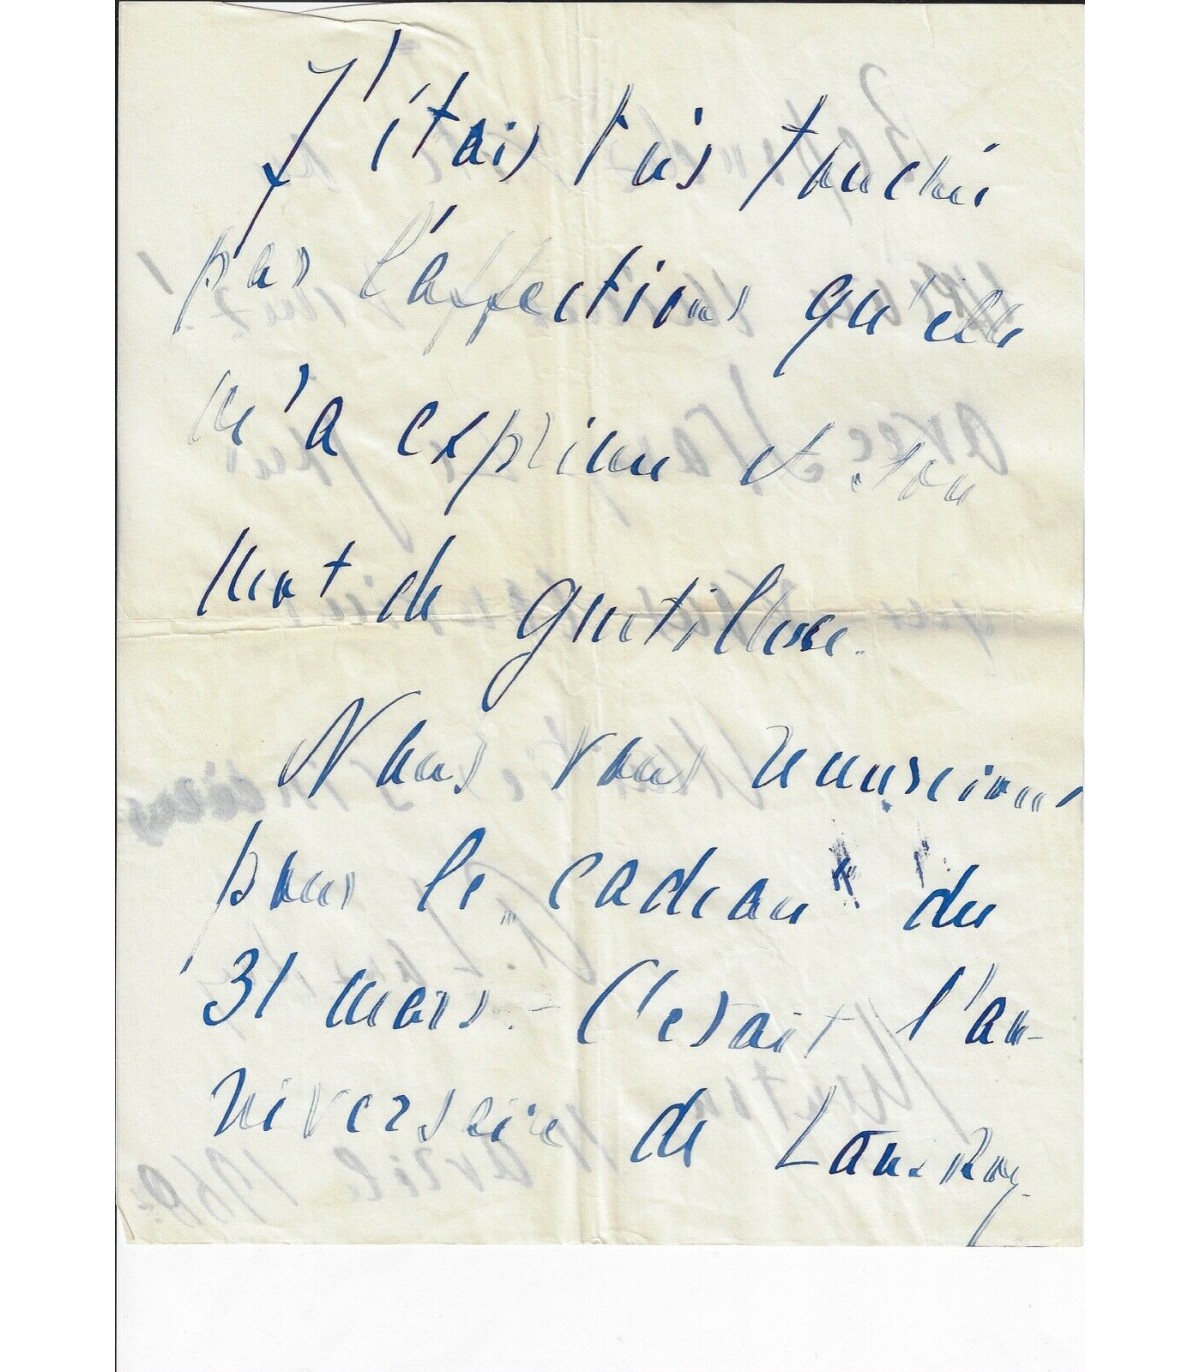 J'étais très touchée
par l'affections qu'elle
m'a exprimé et son
mot de gentillesse.
Nous vous remercions
pour le cadeau du
31 mars. - C'était l'an-
niversaire de Lau-Roy.